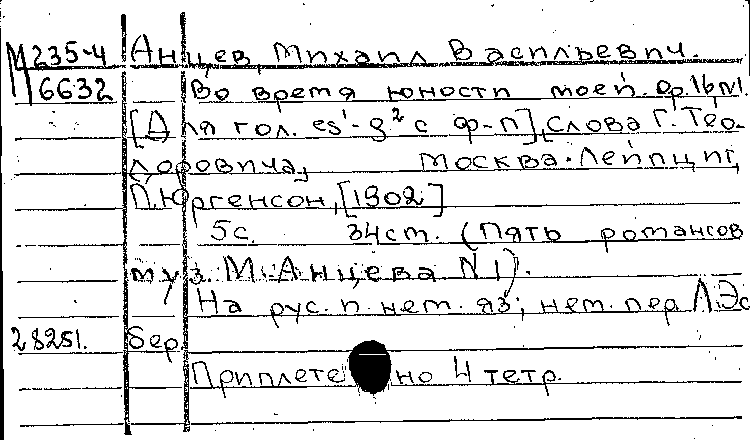 М 235-4 Анцев, Михаил Васильевич.
6632 Во время юности моей. op.16 N1.
[Для гол. es¹-g² с ф-п], Слова Г. Тео-
доровича, Москва-Лейпциг,
П. Юргенсон, [1902]
5с. 34 ст. (Пять романсов
муз. М. Анцева N 1).
На рус. п. нем. яз; нем. пер. Л. Эс
28251. бер.
Приплетено 4 тетр.